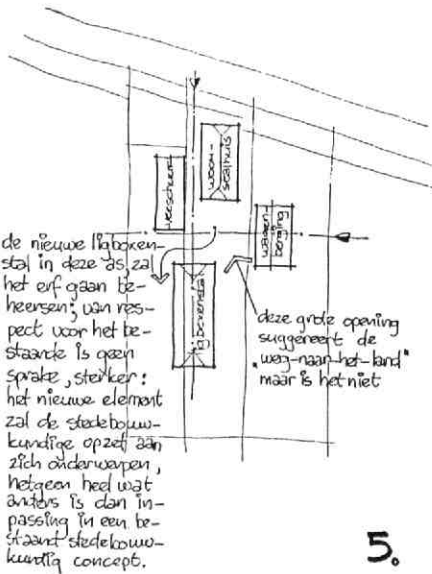 woon-
stalhuis
veeschuur
wagen-
berging
ligboxenstal
de nieuwe ligboxen-
stal in deze as, zal
het erf gaan be-
heersen; van res-
pect voor het be-
staande is geen
sprake, sterker:
het nieuwe element
zal de stedebouw-
kundige opzet aan
zich onderwerpen,
hetgeen heel wat
anders is dan in-
passing in een be-
staand stedebouw-
kundig concept.
deze grote opening
suggereert de
"weg-naar-het-land"
maar is het niet
5.